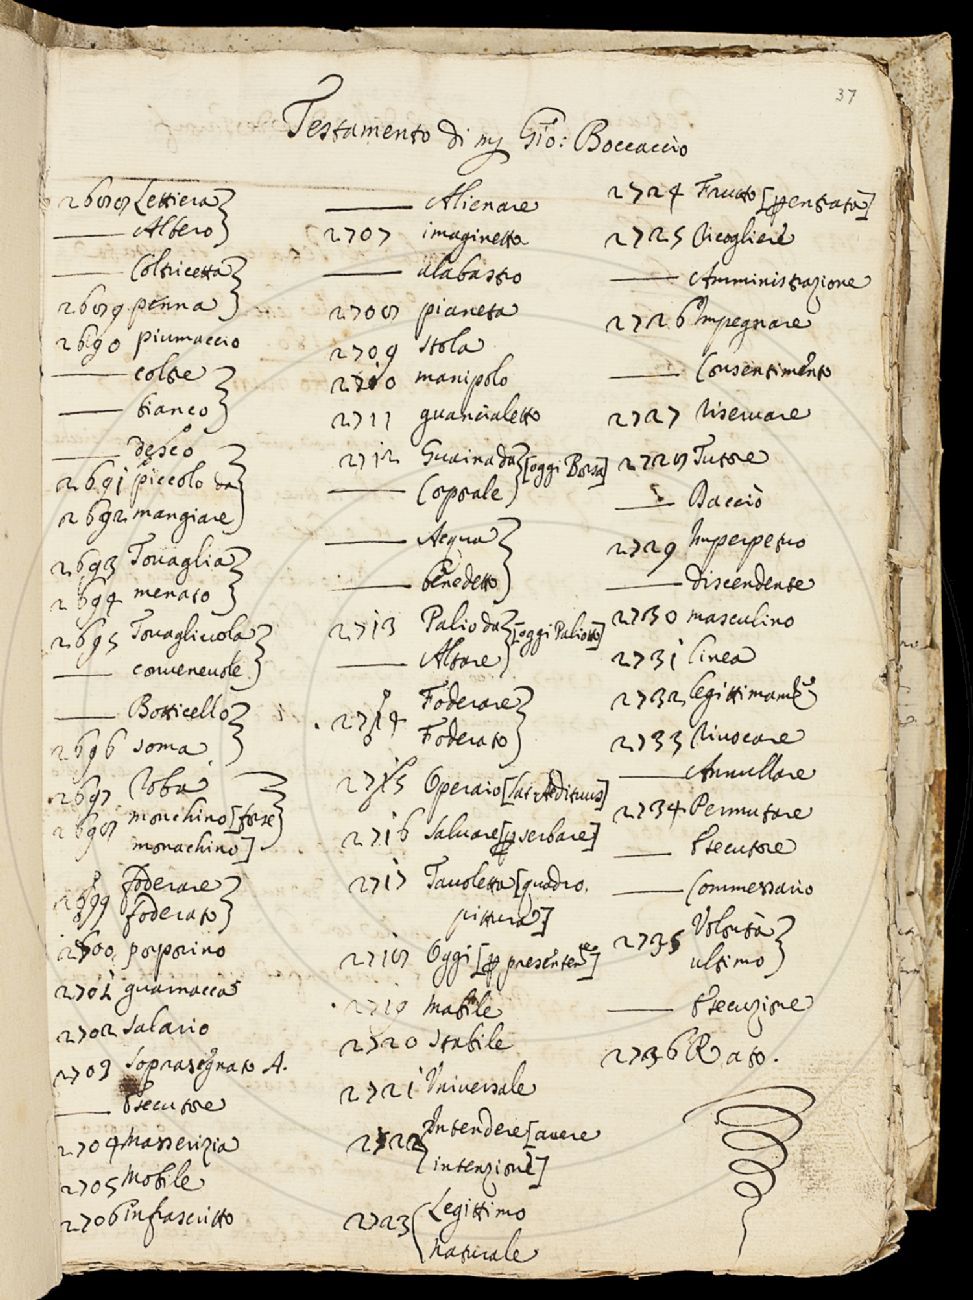 37
Testamento di mʒ Gio: Boccaccio
2688 Lettiera
—— Albero
—— Coltricetta
2689 penna
2690 piumaccio
—— coltre
—— bianco
—— Desco
2691 piccolo da
2692 mangiare
2693 Tovaglia
2694 menato
2695 Tovagliuola
—— convenevole
—— Botticello
2696 soma
2697 Roba
2698 monchino [forse
monachino]
2699 foderare
foderato
2700 porporino
2701 guarnacca
2702 Salario
2703 Soprasegnato A.
—— Esecutore
2704 Masserizia
2705 Mobile
2706 infrascritto
—— Alienare
2707 imaginetta
—— alabastro
2708 pianeta
2709 stola
2710 manipolo
2711 guancialetto
2712 Guaina da [oggi Borsa]
—— Corporale
—— Acqua
—— benedetto
2713 Palio da [oggi Paliotto]
—— Altare
2714 Foderare
Foderato
2715 Operaio
2716 Salvare [p serbare]
2717 Tavoletta [quadro.
pittura]
2718 Oggi
2719 Mobile
2720 Stabile
2721 Universale
2722 Intendere [avere
intenzione]
2723 Legittimo
Naturale
2724 Frutto [p entrata]
2725 Ricogliere
—— Amministrazione
2726 Impegnare
—— Consentimento
2727 Riservare
2728 Tutore
—— Boccio
2729 Imperpetuo
—— Discendente
2730 masculino
2731 Linea
2732 Legittimamte
2733 Rivocare
—— Annullare
2734 Permutare
—— Esecutore
—— Commessario
2735 Volontà
ultimo
—— Esecuzione
2736 Rato.